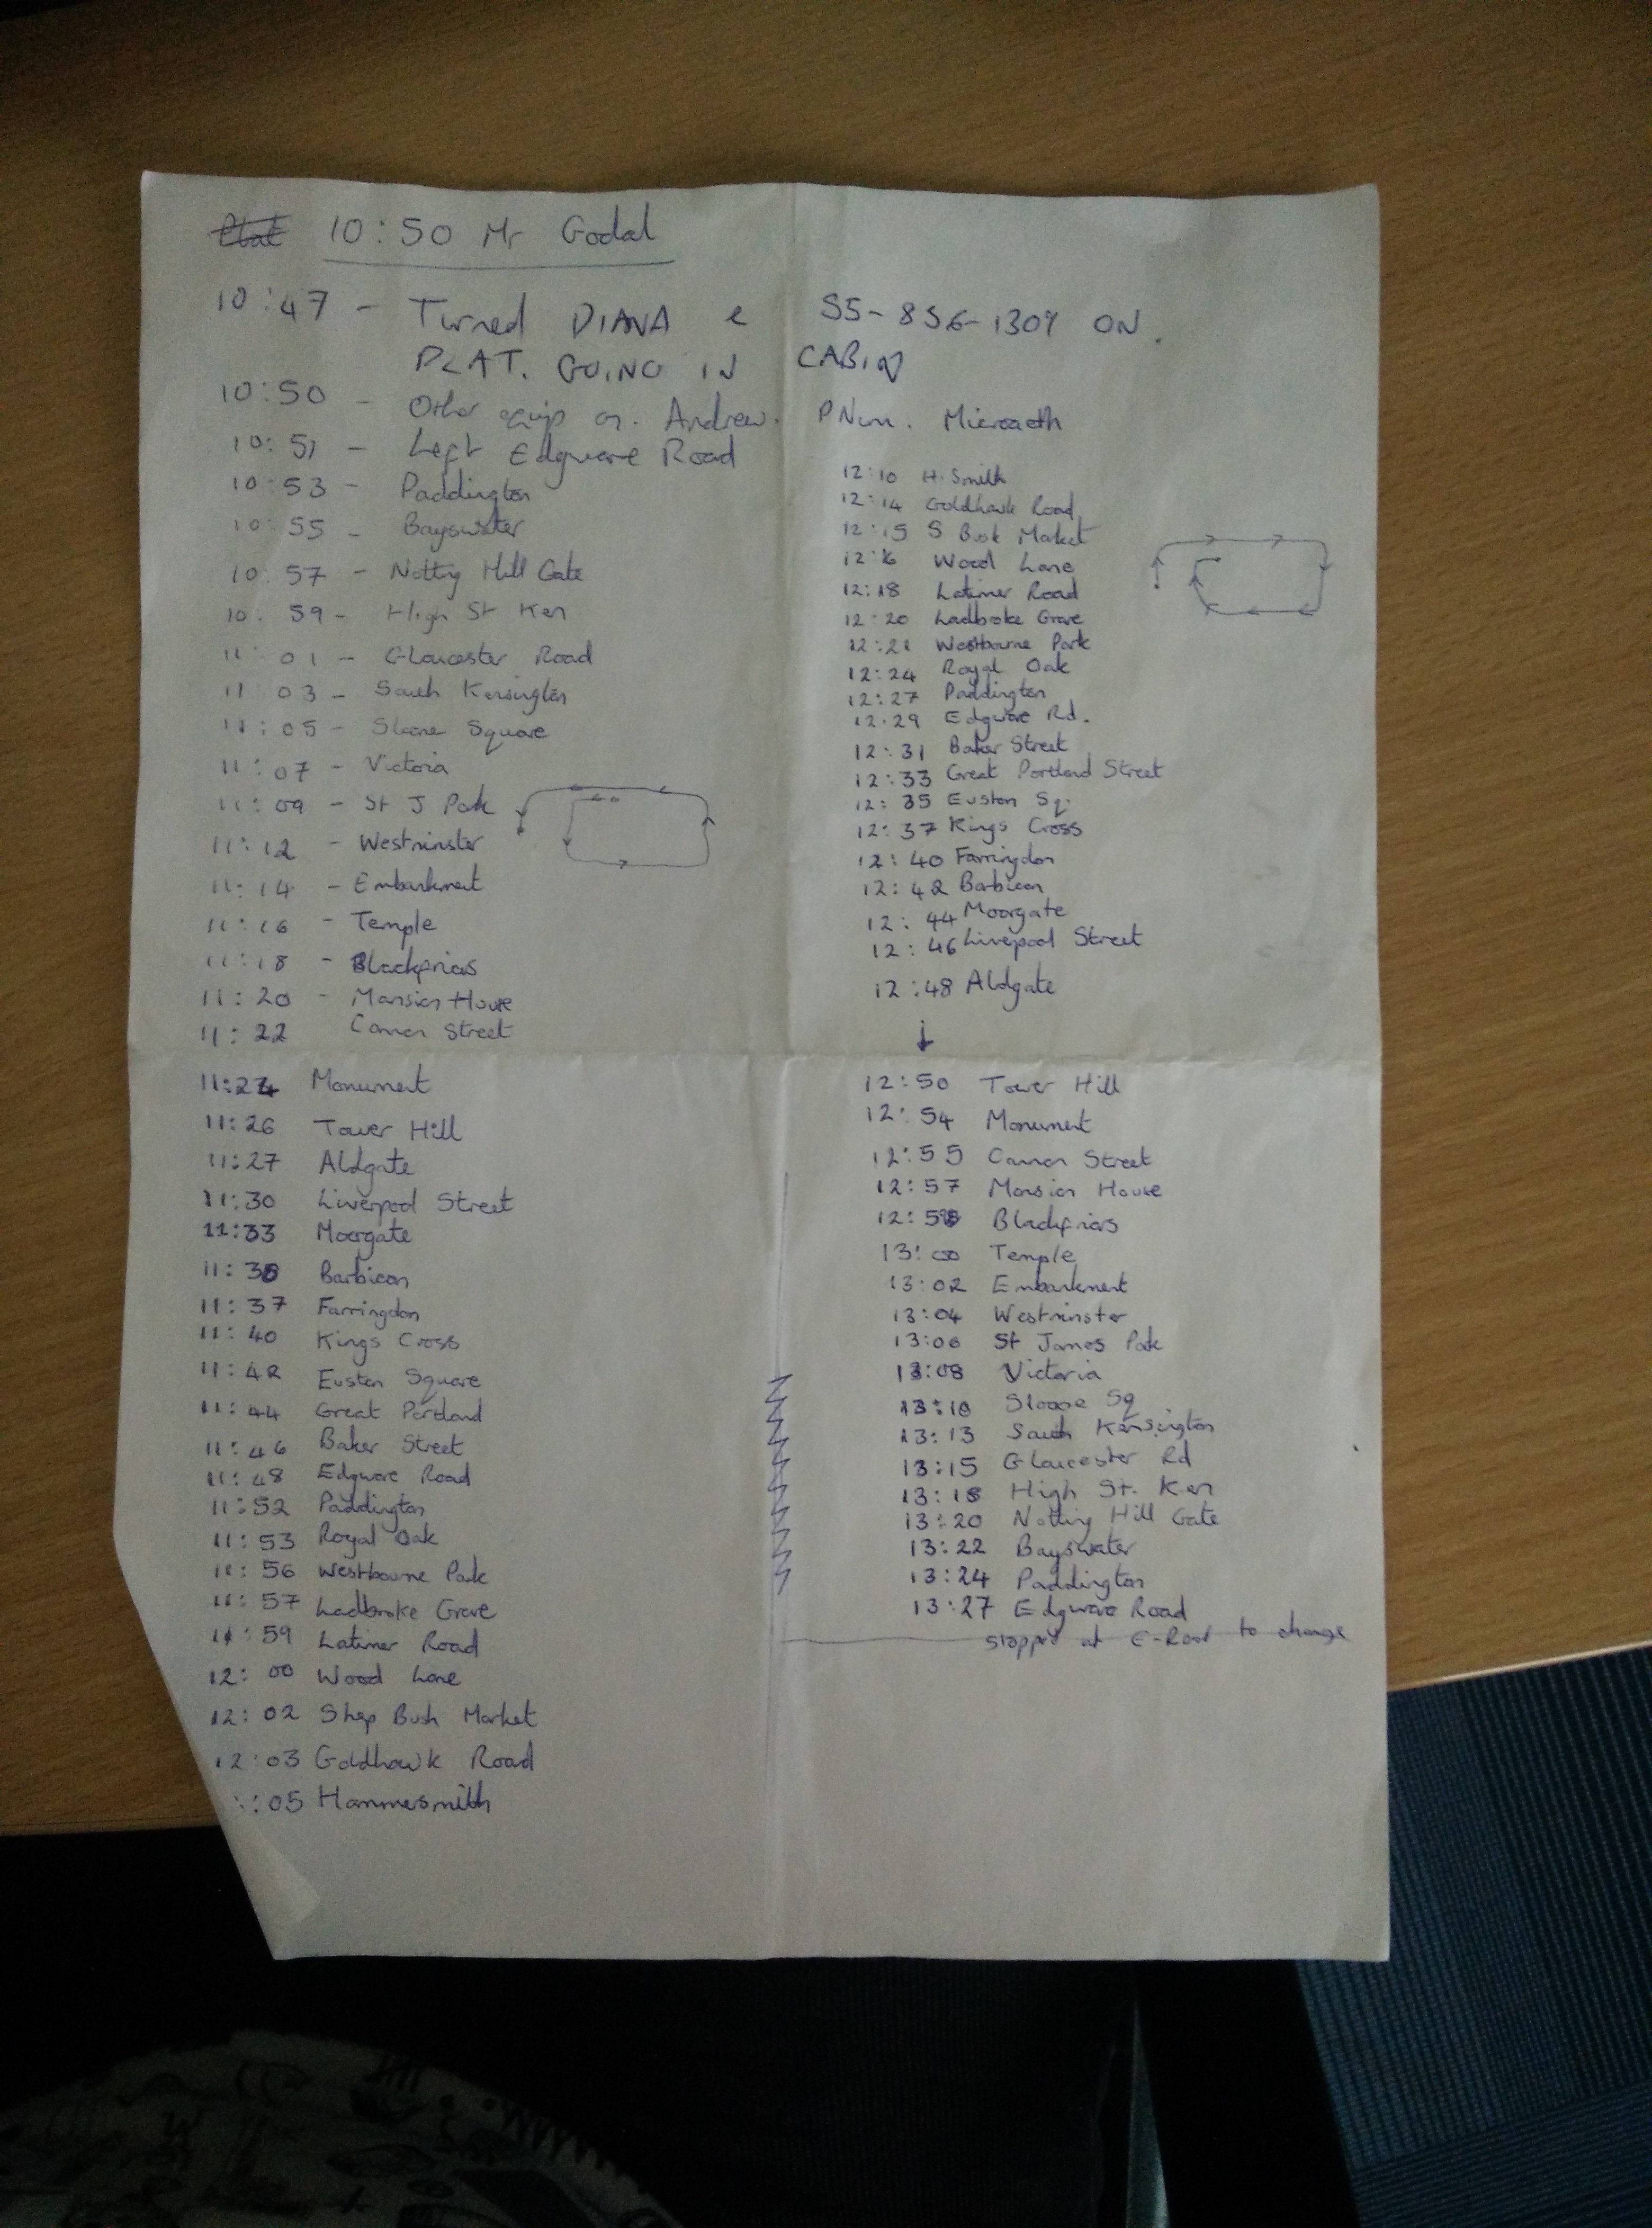 10:50 Mr Godal
10:47 - Turned DIANA e S5-856-1309 ON
PLAT. GOING IN CABIN
10:50 - Other equip on. Andrew. PNum.
10:51 - Left Edgware Road
10:53 - Paddington
10:55 - Bayswater
10:57 - Notting Hill Gate
10:59 - High St Ken
11:01 - Gloucester Road
11:03 - South Kensington
11:05 - Sloane Square
11:07 - Victoria
11:09 - St J Park
11:12 - Westminster
11:14 - Embankment
11:16 - Temple
11:18 - Blackfriars
11:20 - Mansion House
11:22 Cannon Street
11:24 Monument
11:26 Tower Hill
11:27 Aldgate
11:30 Liverpool Street
11:33 Moorgate
Barbican
11:37 Farringdon
11:40 Kings Cross
11:42 Euston Square
11:44 Great Portland
11:46 Baker Street
11:48 Edgware Road
11:52 Paddington
11:53 Royal Oak
11:56 Westbourne Park
11:57 Ladbroke Grove
11:59 Latimer Road
12:00 Wood Lane
12:02 Shep Bush Market
12:03 Goldhawk Road
:05 Hammersmith
12:10 H. Smith
12:14 Goldhawk Road
12:15 S Bush Market
12:16 Wood Lane
12:18 Latimer Road
12:20 Ladbroke Grove
12:21 Westbourne Park
12:24 Royal Oak
12:27 Paddington
12.29 Edgware Rd.
12:31 Baker Street
12:33 Great Portland Street
12:35 Euston Sq.
12:37 Kings Cross
12:40 Farringdon
12:42 Barbican
12:44 Moorgate
12:46 Liverpool Street
12:48 Aldgate
12:50 Tower Hill
12:54 Monument
12:55 Cannon Street
12:57 Mansion House
Blackfriars
13:00 Temple
13:02 Embankment
13:04 Westminster
13:06 St James Park
13:08 Victoria
13:10 Sloane Sq
13:13 South Kensington
13:15 Gloucester Rd
13:18 High St. Ken
13:20 Notting Hill Gate
13:22 Bayswater
13:24 Paddington
13:27 Edgware Road
stopped at E-Road to change